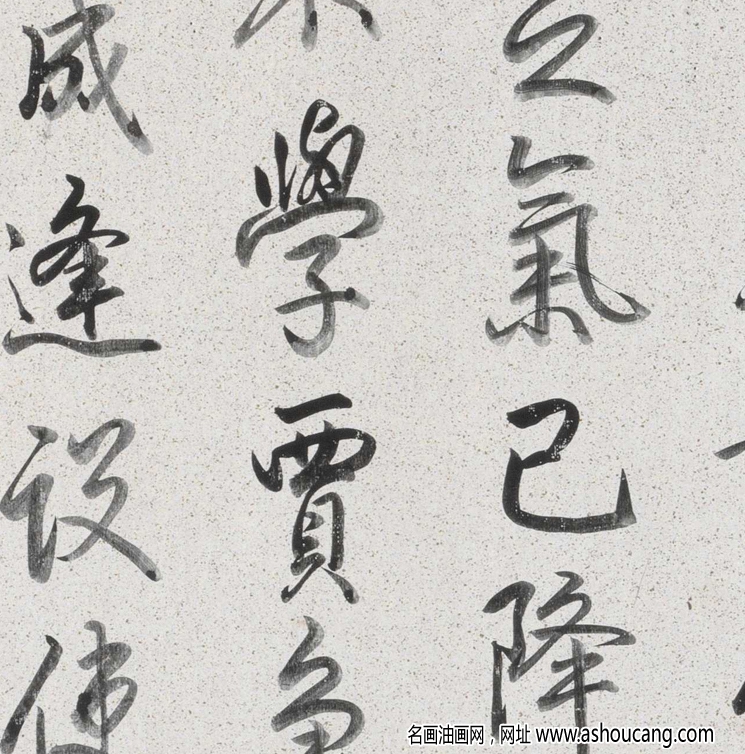 氣已降
學賈
威逢設使
名画油画网，网址 www.ashoucang.com